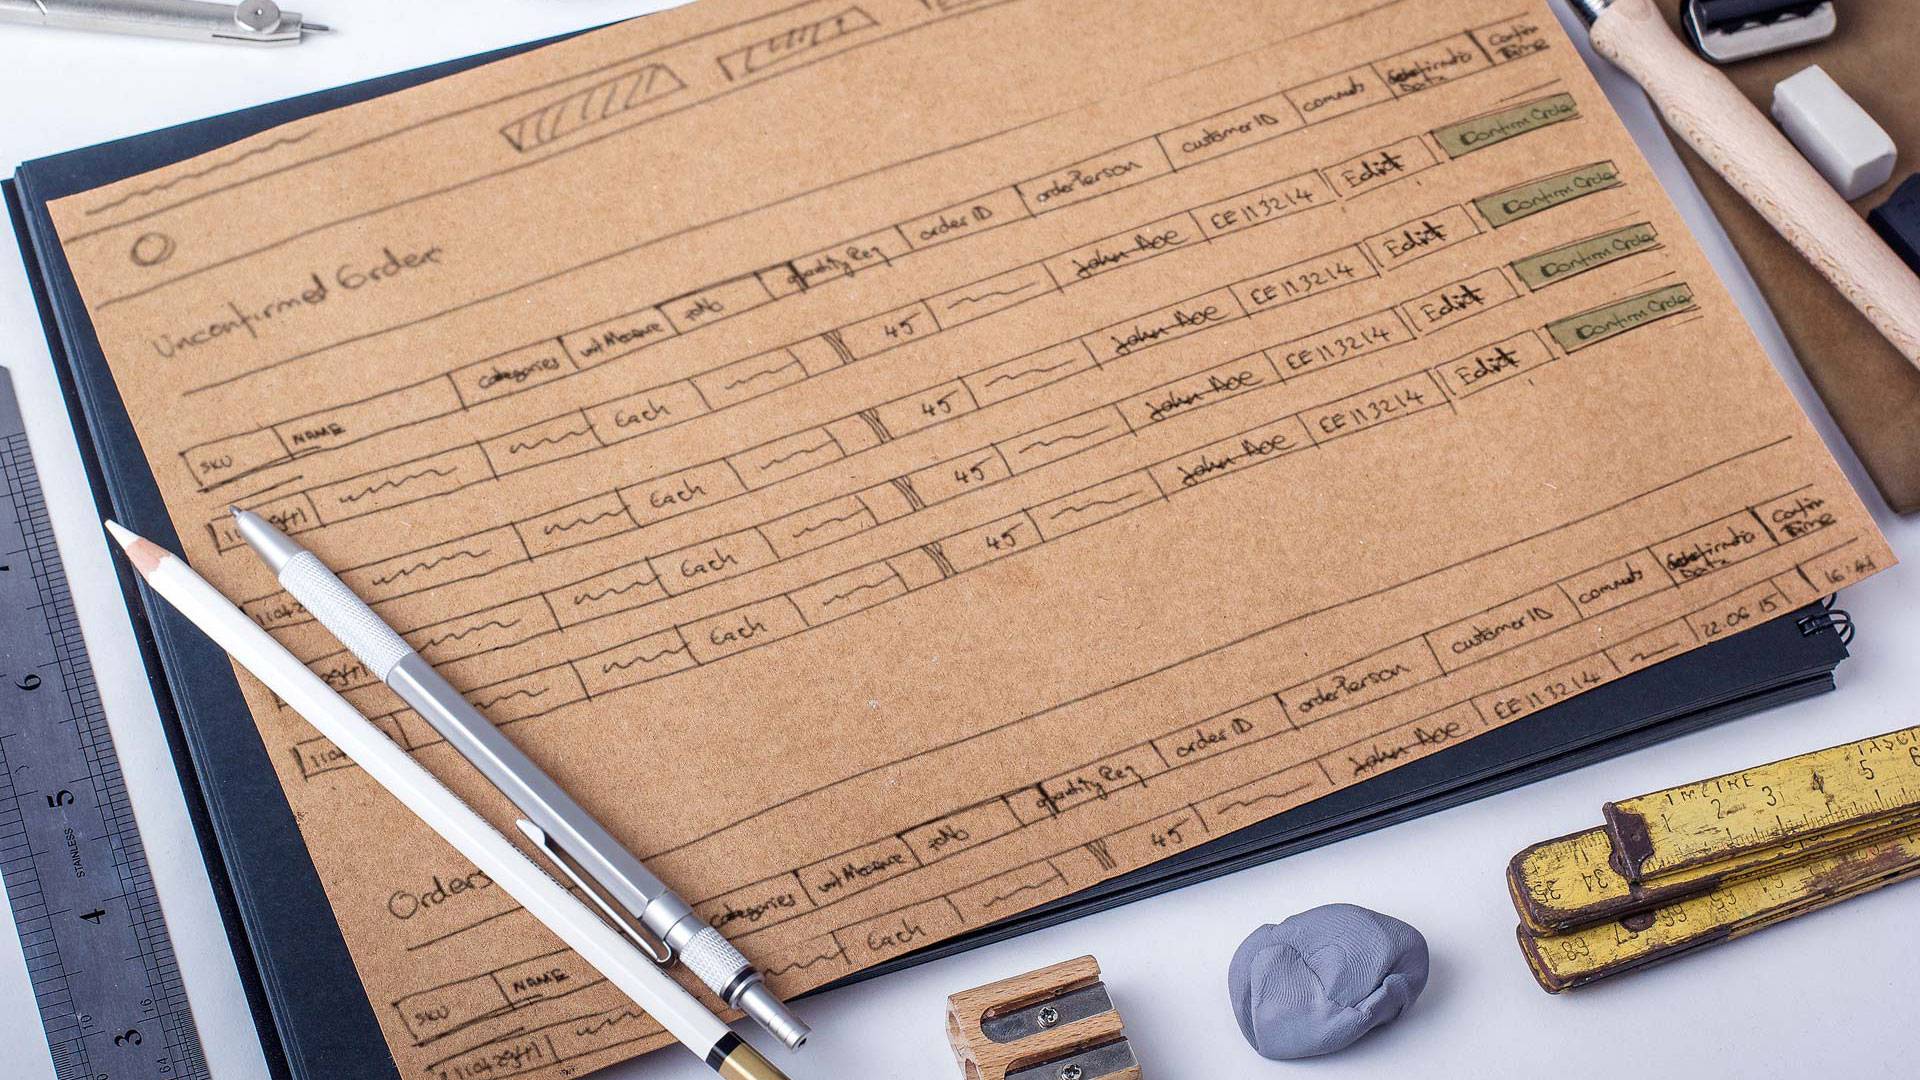 Unconfirmed Order
SKU NAME categories unit Measure poNo quantity Req order ID orderPerson customer ID comments Confirmatio Date Confirm Time
Each 45 John Doe EE113214 Edit Confirm Order
Each 45 John Doe EE113214 Edit Confirm Order
Each 45 John Doe EE113214 Edit Confirm Order
Each 45 John Doe EE113214 Edit Confirm Order
Orders
SKU NAME categories unit Measure poNo quantity Req order ID orderPerson customer ID comments Confirmatio Date Confirm Time
Each 45 John Doe EE113214 22.06 15 16:44
6
5
STAINLESS
4
3
1 METRE 2 3 4 5 6